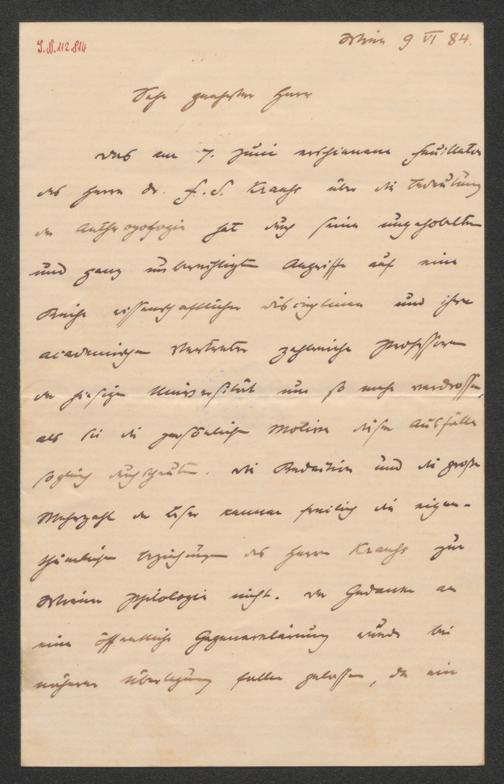 I.N. 112.814
Wien 9 VI 84.
Sehr geehrter Herr
Das am 7. Juni erschienene Feuilleton
des Herrn Dr. F. S. Krauss über die Bedeutung
der Anthropofagie hat durch seine ungehobelten
und ganz unberechtigten Angriffe auf eine
Reihe wissenschaftlicher Disciplinen und ihre
academischen Vertreter zahlreiche Professoren
der hiesigen Universität um so mehr verdrossen,
als sie die persönlichen Motive dieser Ausfälle
sogleich durchschauten. Die Redaction und die große
Mehrzahl der Leser kennen freilich die eigen-
thümlichen Beziehungen des Herrn Krauss zur
Wiener Philologie nicht. Der Gedanke an
eine öffentliche Gegenerklärung wurde bei
näherer Überlegung fallen gelassen, da ein